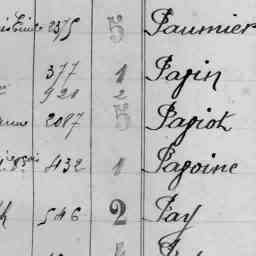 2375 5 Paumier
377 1 Pagin
921 2
2087 5 Pagiot
432 1 Pagoine
546 2 Pay